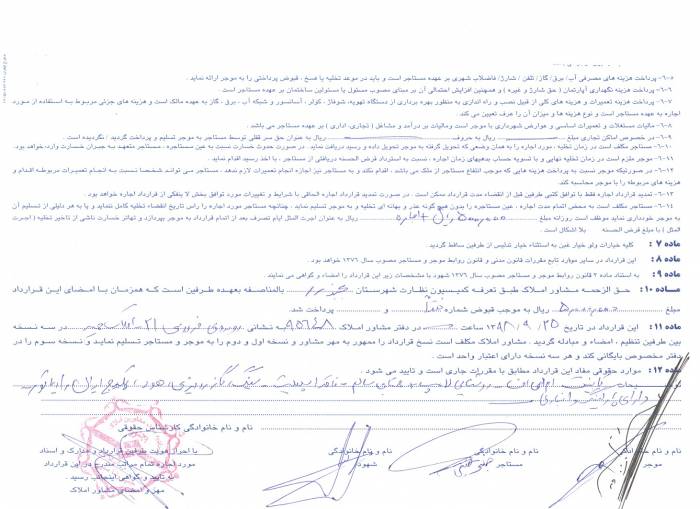 ۵-۶- پرداخت هزینه های مصرفی آب / برق / گاز / تلفن / شارژ/ فاضلاب شهری بر عهده مستاجر است و باید در موعد تخلیه یا فسخ ، قبوض پرداختی را به موجر ارائه نماید .
۶-۶- پرداخت هزینه نگهداری آپارتمان ( حق شارژ و غیره ) و همچنین افزایش احتمالی آن بر مبنای مصوب مسئول یا مسئولین ساختمان بر عهده مستاجر است .
۷-۶- پرداخت هزینه تعمیرات و هزینه های کلی از قبیل نصب و راه اندازی به منظور بهره برداری از دستگاه تهویه، شوفاژ ، کولر ، آسانسور و شبکه آب ، برق ، گاز به عهده مالک است و هزینه های جزئی مربوط به استفاده از مورد
اجاره به عهده مستاجر است و نوع هزینه ها و میزان آن را عرف تعیین می کند .
۸-۶- مالیات مستغلات و تعمیرات اساسی و عوارض شهرداری با موجر است ومالیات بر درآمد و مشاغل ( تجاری، اداری ) بر عهده مستاجر می باشد .
۹-۶- در خصوص اماکن تجاری مبلغ ریال به حروف ریال به عنوان حق سر قفلی توسط مستاجر به موجر تسلیم و پرداخت گردید / نگردیده است .
۱۰-۶- مستاجر مکلف است در زمان تخلیه ، مورد اجاره را به همان وضعی که تحویل گرفته به موجر تحویل داده و رسید دریافت نماید . در صورت حدوث خسارت نسبت به عین مستاجره ، مستاجر متعهد به جبران خسارت وارده خواهد بود.
۱۱-۶- موجر ملزم است در زمان تخلیه نهایی و با تسویه حساب بدهیهای زمان اجاره ، نسبت به استرداد قرض الحسنه دریافتی از مستاجر ، با اخذ رسید اقدام نماید .
۱۲-۶- در صورتیکه موجر نسبت به پرداخت هزینه هایی که موجب انتفاع مستاجر از ملک می باشد ، اقدام نکند و به مستاجر نیز اجازه انجام تعمیرات لازم ندهد ، مستاجر می تواند شخصا نسبت به انجام تعمیرات مربوطه اقدام و
هزینه های مربوطه را با موجر محاسبه کند .
۱۳-۶- تمدید قرارداد اجاره فقط با توافق کتبی طرفین قبل از انقضاء مدت قرارداد ممکن است . در صورت تمدید قرارداد اجاره الحاقی با شرایط و تغییرات مورد توافق بخش لا ینفکی از قرارداد اجاره خواهد بود .
۱۴-۶- مستاجر مکلف است به محض اتمام مدت اجاره ، عین مستاجره را بدون هیچ گونه عذر و بهانه ای تخلیه و به موجر تسلیم نماید . چنانچه مستاجر مورد اجاره را راس تاریخ انقضاء تخلیه کامل ننماید و یا به هر دلیلی از تسلیم آن
به موجر خودداری نماید موظف است روزانه مبلغ ریال به عنوان اجرت المثل ایام تصرف بعد از اتمام قرارداد به موجر بپردازد و تهاتر خسارت ناشی از تاخیر تخلیه ( اجرت
المثل ) با مبلغ قرض الحسنه بلا اشکال است .
ماده ۷ : کلیه خیارات ولو خیار غبن به استثناء خیار تدلیس از طرفین ساقط گردید .
ماده ۸ : این قرارداد در سایر موارد تابع مقررات قانون مدنی و قانون روابط موجر و مستاجر مصوب سال ۱۳۷۶ خواهد بود.
ماده ۹ : به استناد ماده ۲ قانون روابط موجر و مستاجر مصوب سال ۱۳۷۶ شهود با مشخصات زیر این قرارداد را امضاء و گواهی می نمایند .
ماده ۱۰ : حق الزحمه مشاور املاک طبق تعرفه کمیسیون نظارت شهرستان بالمناصفه بعهده طرفین است که همزمان با امضای این قرارداد
مبلغ ریال به موجب قبوض شماره و پرداخت شد.
ماده ۱۱ : این قرارداد در تاریخ ۱۳۸۸/۹/۲۵ ساعت در دفتر مشاور املاک ۹۵۶۴۸ به نشانی در سه نسخه
بین طرفین تنظیم ، امضاء و مبادله گردید . مشاور املاک مکلف است نسخ قرارداد را ممهور به مهر مشاور و نسخه اول و دوم را به موجر و مستاجر تسلیم نماید و نسخه سوم را در
دفتر مخصوص بایگانی کند و هر سه نسخه دارای اعتبار واحد است .
ماده ۱۲ : موارد حقوقی مفاد این قرارداد مطابق با مقررات جاری است و تایید می شود .
نام و نام خانوادگی کارشناس حقوقی
نام و نام خانوادگی
موجر
نام و نام خانوادگی
مستاجر
نام و نام خانوادگی
شهود
با احراز هویت طرفین قرارداد و مدارک و اسناد
مورد اجاره تمام مراتب مندرج در این قرارداد
به تایید و گواهی اینجانب رسید .
مهر و امضای مشاور املاک